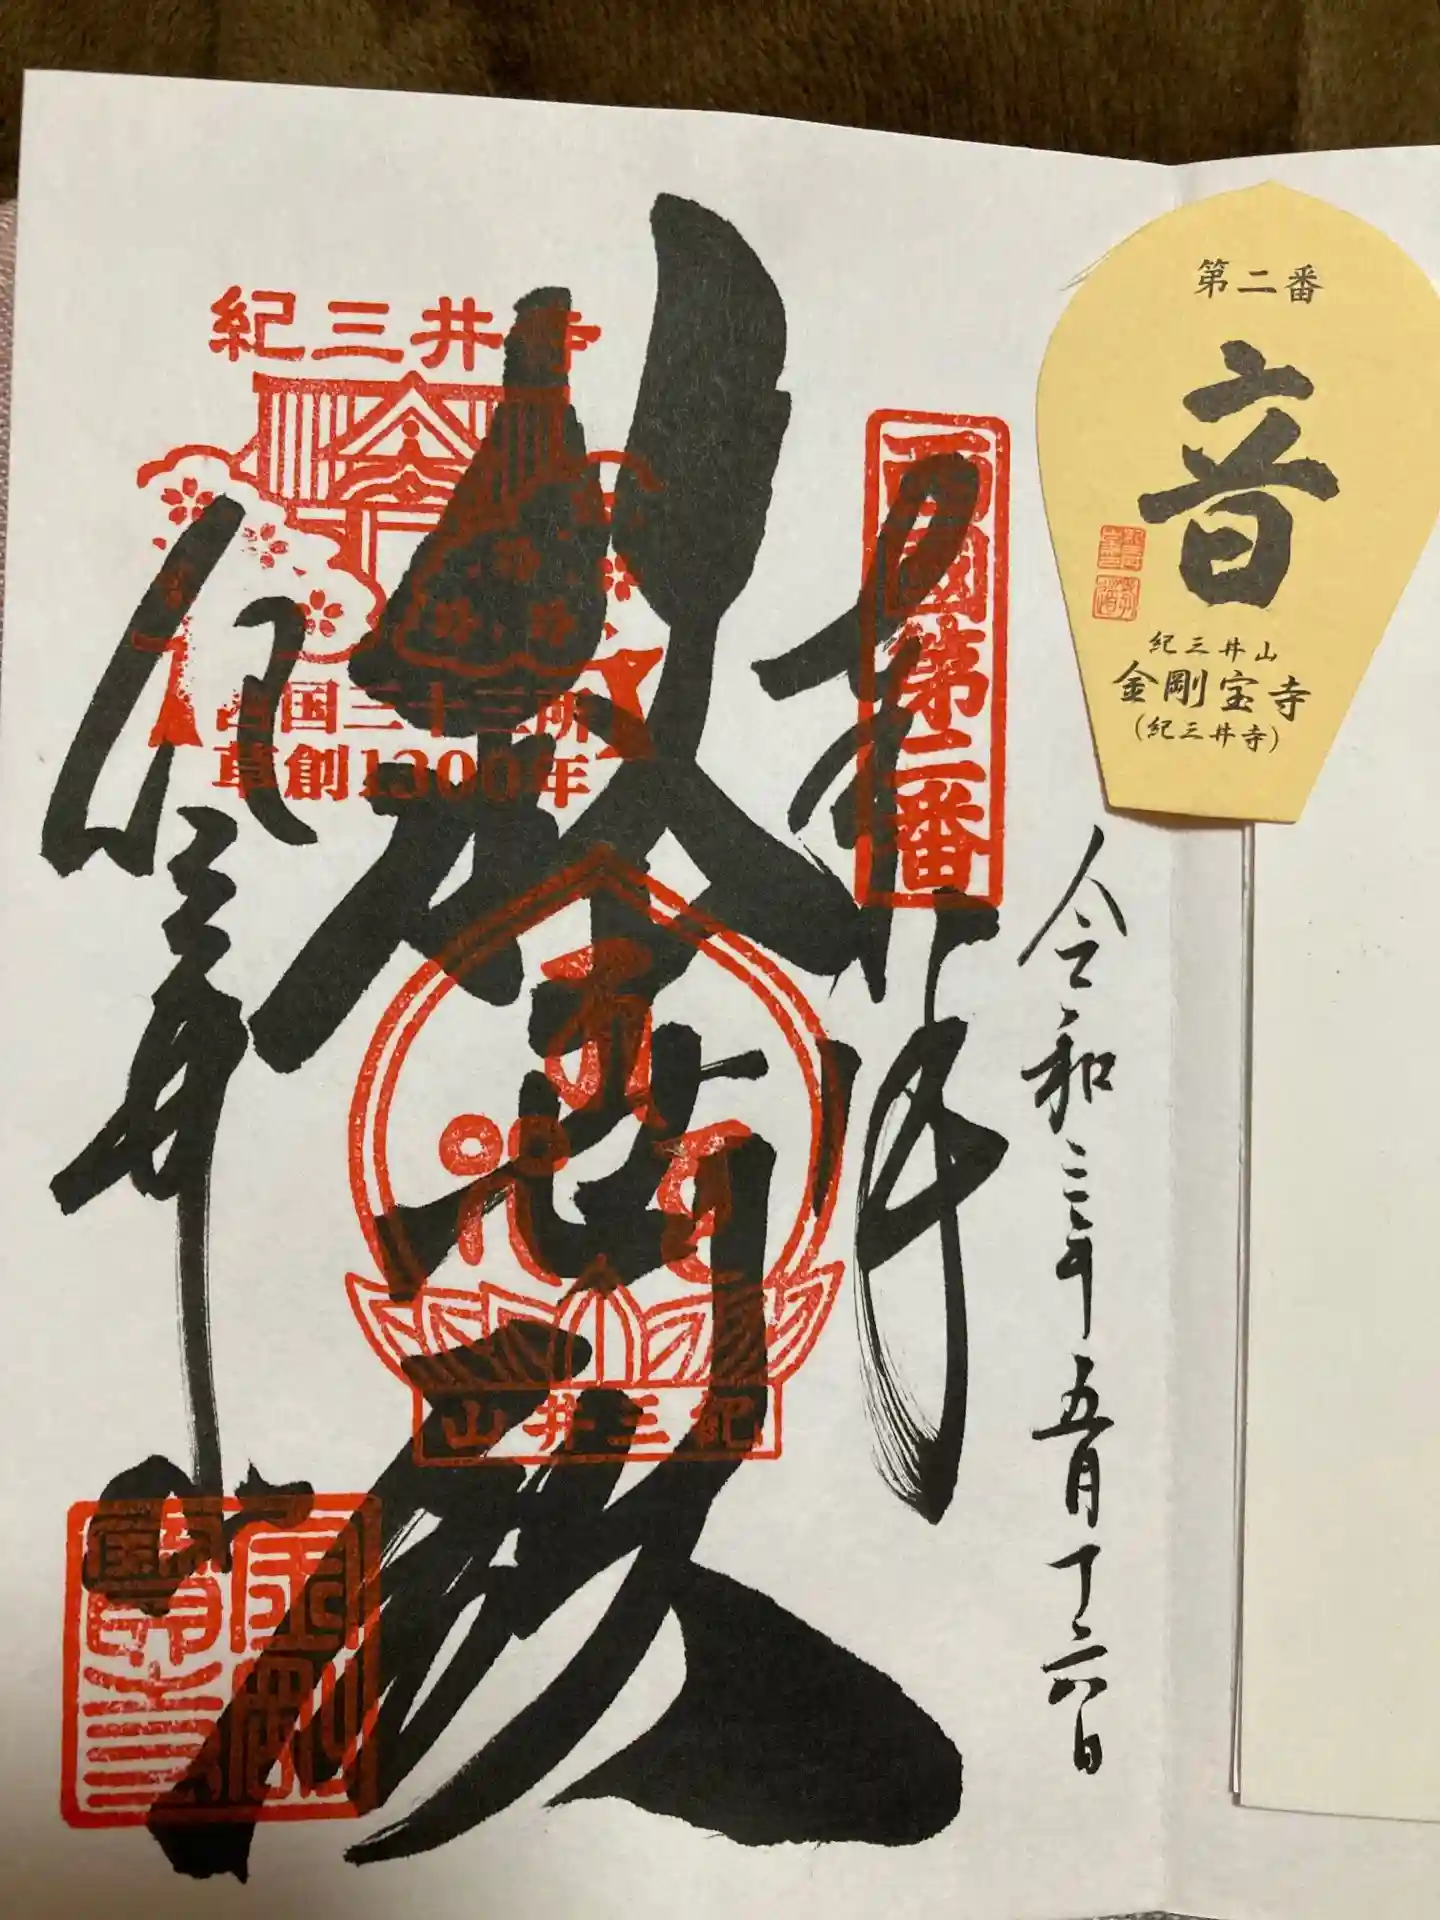 第二番
音
紀三井山
金剛宝寺
（紀三井寺）
令和三年五月十六日
西國第二番
奉拝
救世殿
紀三井寺
紀三井寺
西国三十三所
草創1300年
山井三紀